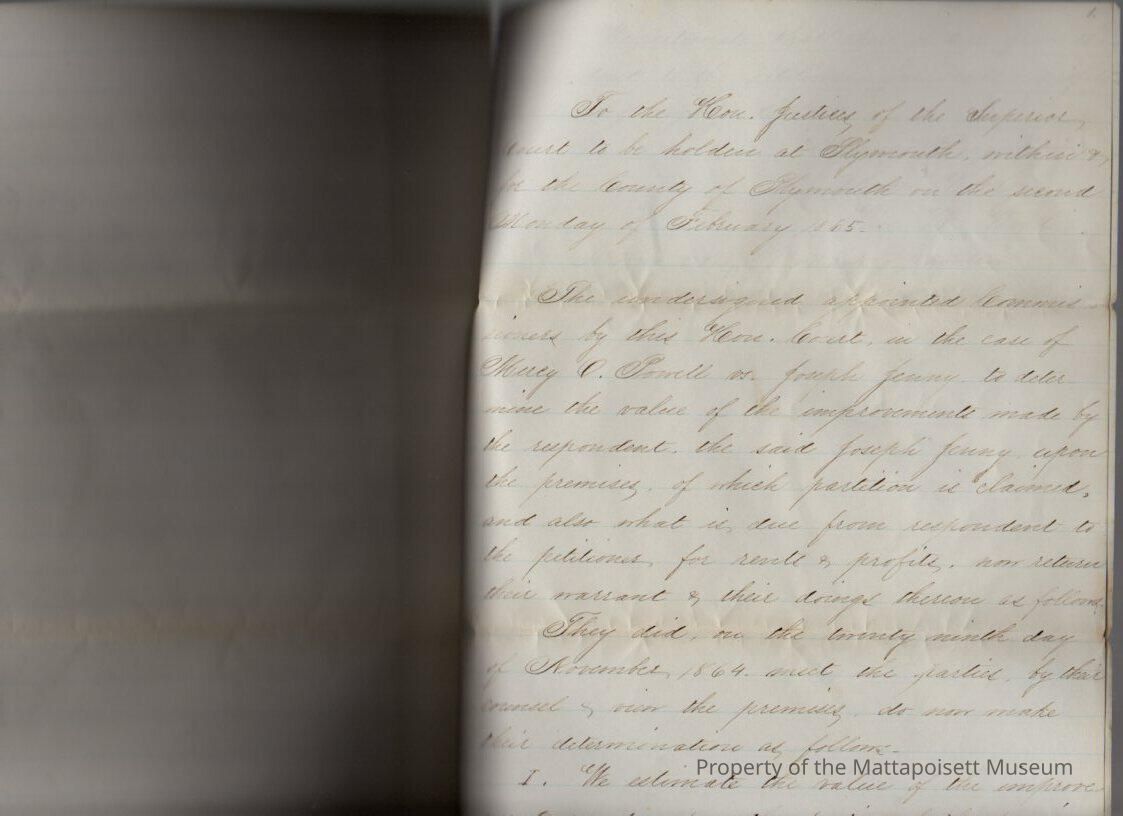 1.
To the Hon. Justices of the Superior
Court to be holden at Plymouth, within &
for the County of Plymouth on the second
Monday of February 1865.
The undersigned appointed Commis-
sioners by this Hon. Court, in the case of
Mercy O. Powell vs. Joseph Jenny to deter
mine the value of the improvements made by
the respondent, the said Joseph Jenny upon
the premises, of which partition is claimed,
and also what is due from respondent to
the petitioner for rents & profits, now return
their warrant & their doings thereon as follows.
They did, on the twenty ninth day
of November, 1864. meet the parties, by their
counsel & view the premises, do now make
their determination as follows-
I. We estimate the value of the improve-
Property of the Mattapoisett Museum